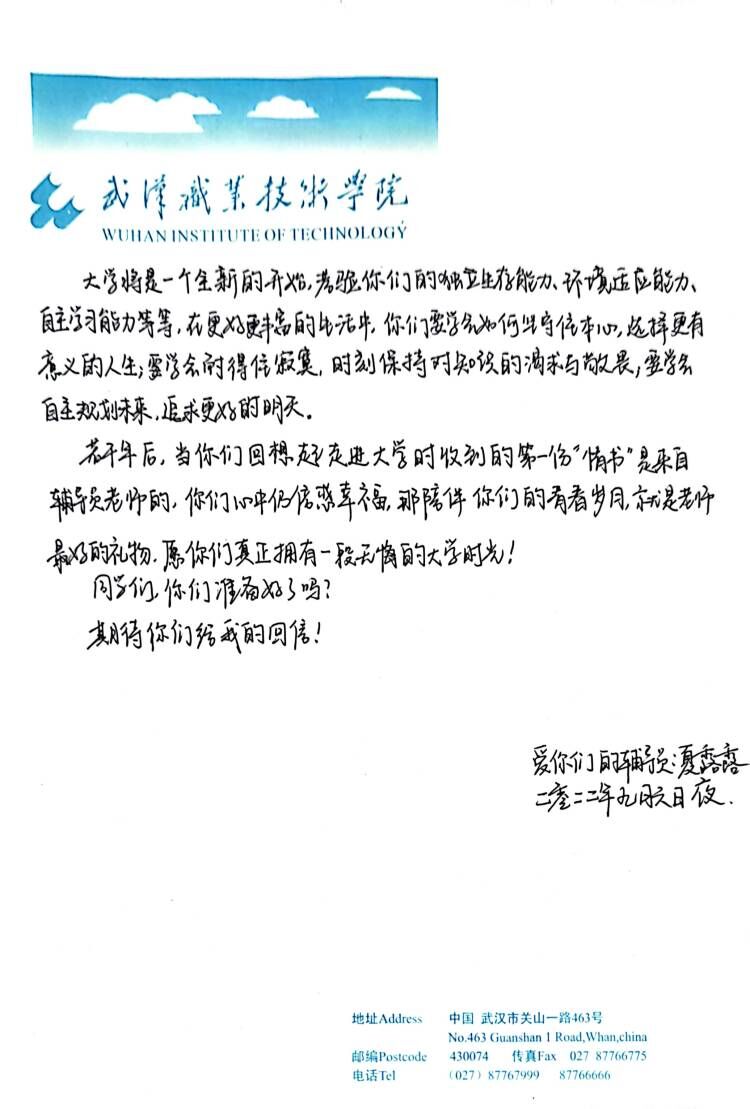 武漢職業技術學院
WUHAN INSTITUTE OF TECHNOLOGY
大学将是一个全新的开始,考验你们的独立生存能力、环境适应能力、
自主学习能力等等,在更好更丰富的生活中,你们要学会如何坚守住本心,选择更有
意义的人生;要学会耐得住寂寞,时刻保持对知识的渴求与敬畏;要学会
自主规划未来,追求更好的明天。
若干年后,当你们回想起走进大学时收到的第一份“情书”是来自
辅导员老师的,你们心中仍倍感幸福,那陪伴你们的青春岁月,就是老师
最好的礼物.愿你们真正拥有一段无悔的大学时光!
同学们,你们准备好了吗?
期待你们给我的回信!
爱你们的辅导员:夏露露
二零二二年九月六日夜.
地址Address 中国 武汉市关山一路463号
No.463 Guanshan 1 Road,Whan,china
邮编Postcode 430074 传真Fax 027 87766775
电话Tel (027) 87767999 87766666